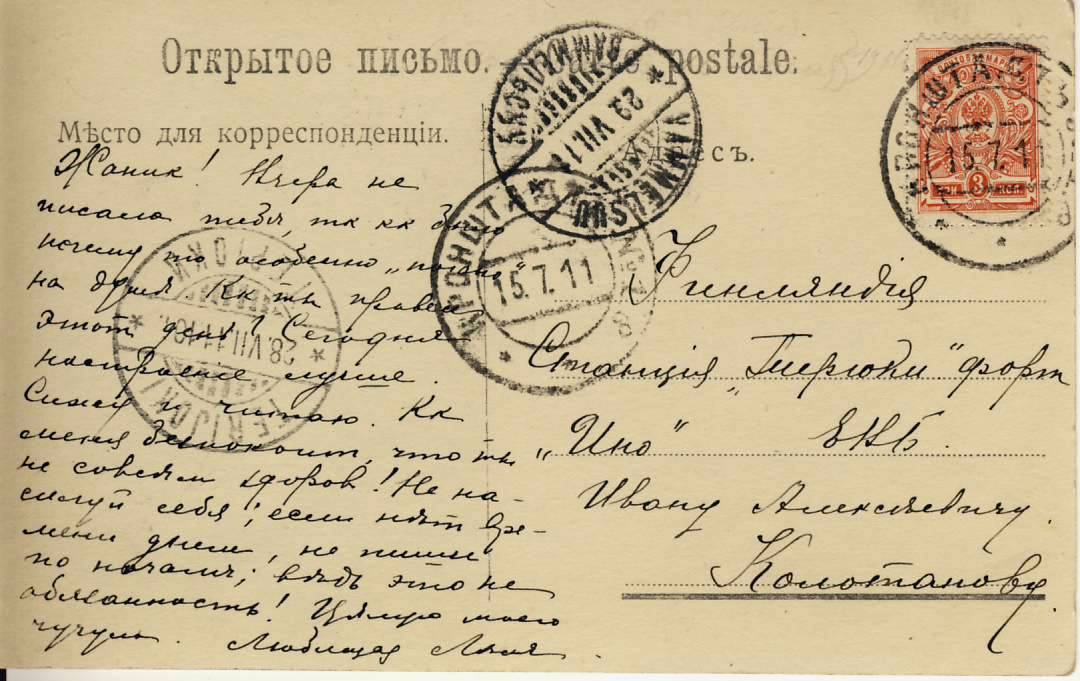 Открытое письмо. postale.
Мѣсто для корреспонденціи.
Жаник! Вчера не
писала тебѣ, тк кк было
почему то особенно „
на душѣ. Кк ты провел
этот день? Сегодня
настроение лучше.
Сижу и читаю. Кк
меня безпокоит, что ты
не совсѣм здоров! Не на-
силуй себя; если нѣт вре-
мени днем, не пиши
по ночам; вѣдь это не
обязанность! Цѣлую моего
чучулю. Любящая
Финляндія
Станція „Терiоки" форт
„Ино" ЕВБ.
Ивану Алексѣевичу
Колотанову.
КРОНШТАДТ
15.7.11
КРОНШТАДТ
15.7.11
8
VAMMELSUU
29.VII.11
TERIJOKI
28.VII.11
3